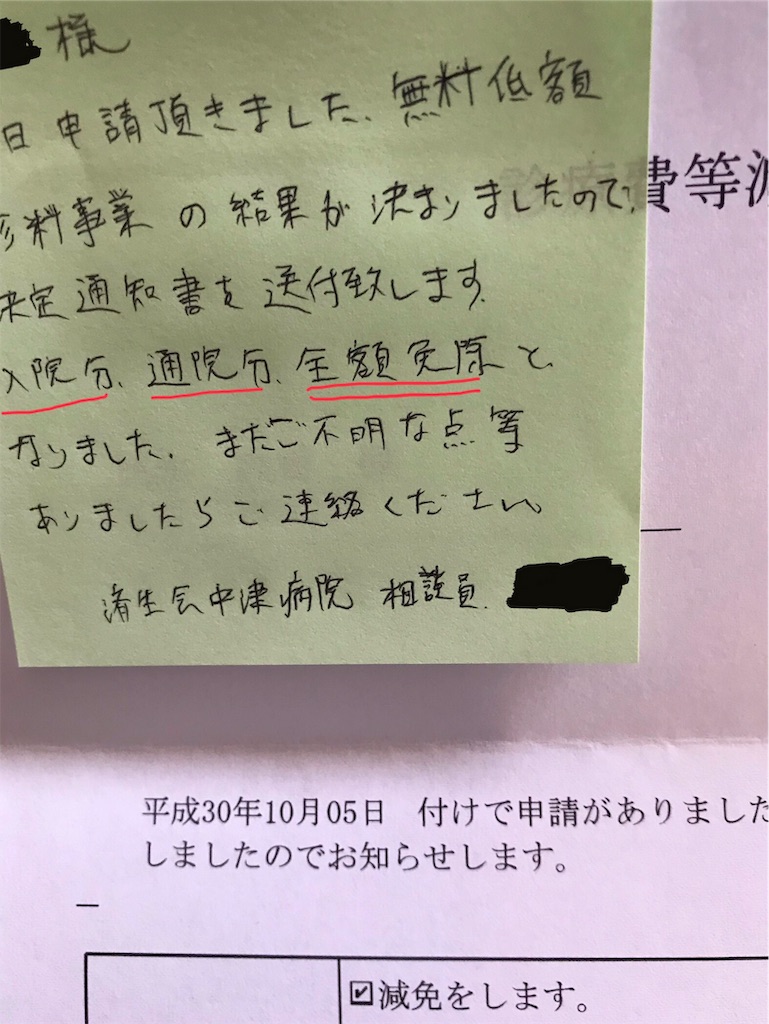 様
日申請頂きました、無料低額
診料事業の結果が決まりましたので、
決定通知書を送付致します。
入院分、通院分、全額免除と、
なりました。まだご不明な点等
ありましたらご連絡ください。
済生会中津病院 相談員
費等減
平成30年10月05日 付けで申請がありました
しましたのでお知らせします。
☑減免をします。